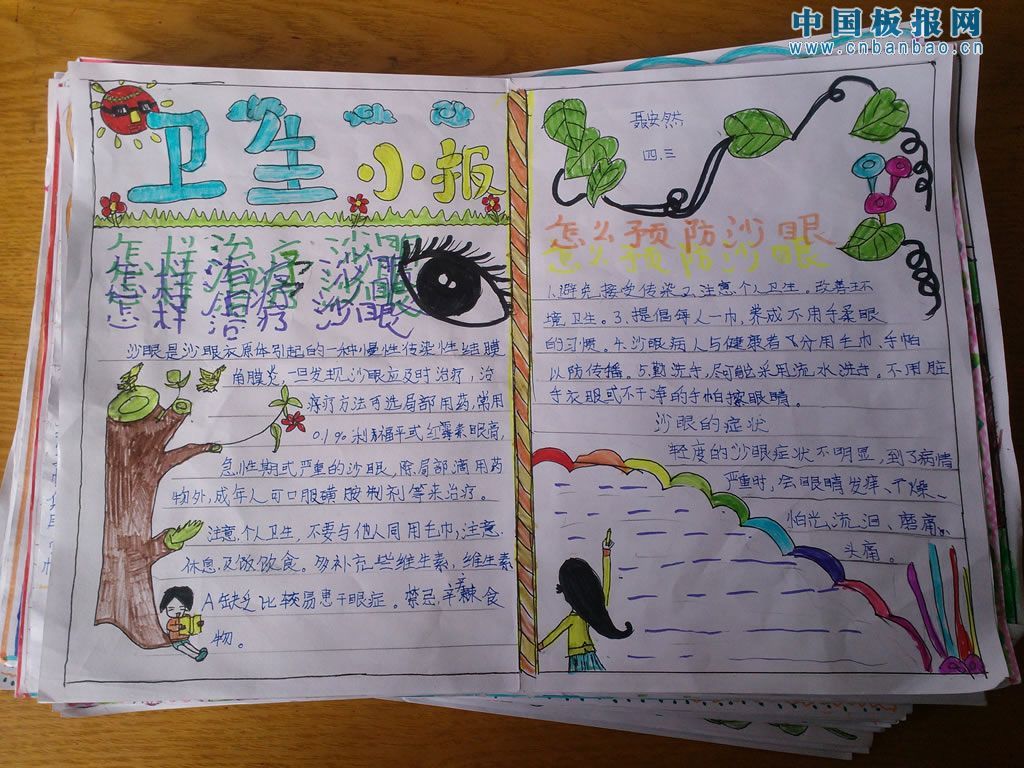 中国板报网
www.cnbanbao.cn
卫生
小报
怎样治疗沙眼
怎样治疗沙眼
怎样治疗沙眼
沙眼是沙眼衣原体引起的一种慢性传染性结膜
角膜炎,一旦发现沙眼应及时治疗,治
疗方法可选局部用药,常用
0.1%利福平或红霉素眼膏,
急性期或严重的沙眼,除局部滴用药
物外,成年人可口服磺胺制剂等来治疗。
注意个人卫生,不要与他人同用毛巾,注意
休息及饭饮食。多补充些维生素,维生素
A缺乏比较易患干眼症。禁忌,辛辣食
物。
聂安然
四.三
怎么预防沙眼
怎么预防沙眼
1.避免接受传染2.注意个人卫生。改善环
境卫生。3.提倡每人一巾,养成不用手柔眼
的习惯。4.沙眼病人与健康者飞分用毛巾、手帕
以防传播。5.勤洗手,尽可能采用流水洗手。不用脏
手衣服或不干净的手帕擦眼睛。
沙眼的症状
轻度的沙眼症状不明显,到了病情
严重时,会眼睛发痒、干燥、
怕光、流泪、磨痛。
头痛。